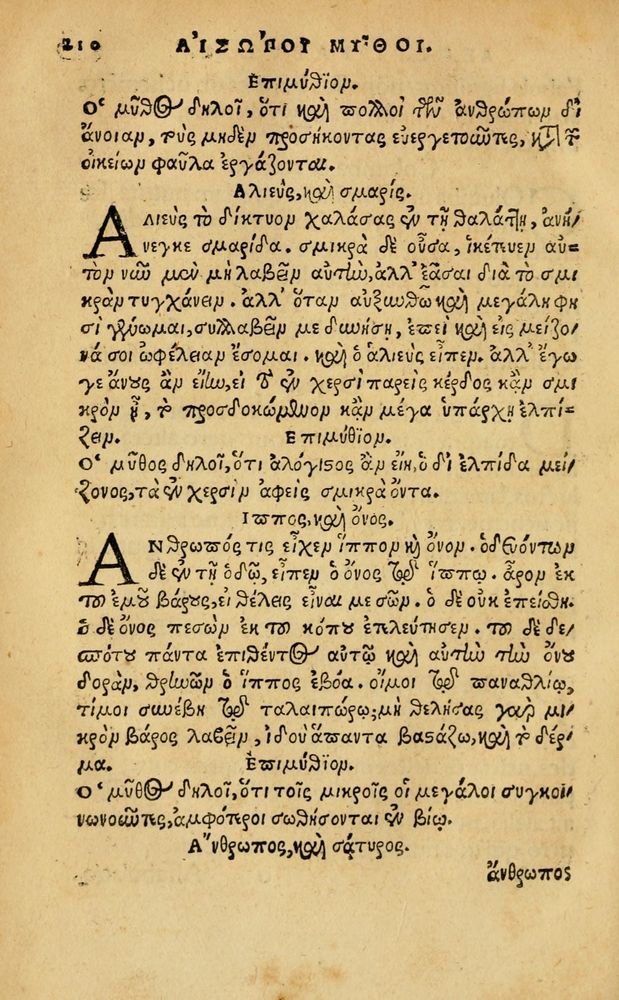 210 ΑἸΣΩ´ΠΟΥ ΜΥ͂ΘΟΙ.
Ἐπιμύθιον.
Ὁ μῦθος δηλοῖ, ὅτι καὶ πολλοὶ τὴν ἀνθρώπων δι
άνοιαν, τοὺς μηδὲν προσήκοντας εὐεργετοῦντες, κατὰ τῶν
οἰκείων φαῦλα ἐργάζονται.
Ἁλιεὺς, καὶ σμαρίς.
ΑΛιεὺς τὸ δίκτυον χαλάσας ἐν τῇ θαλάττῃ, ἀνή-
νεγκε σμαρίδα. σμικρὰ δὲ οὖσα, ἱκέτευεν αὐ-
τὸν νῦν μὲν μὴ λαβεῖν αὐτὴν, ἀλλ' ἐᾶσαι διὰ τὸ σμι
κρὰν τυγχάνειν. ἀλλ' ὅταν αὐξηνθῶ καὶ μεγάλη φη
σὶ γένωμαι, συλλαβεῖν με δυνήσῃ, ἐπεὶ καὶ εἰς μείζο-
νά σοι ὠφέλειαν ἔσομαι. καὶ ὁ ἁλιεὺς εἶπεν. ἀλλ' ἔγω
γε ἄνους ἂν εἴην, εἰ τὸ ἐν χερσὶ παρεὶς κέρδος κἂν σμι
κρὸν ᾖ, τὸ προσδοκώμενον κἂν μέγα ὑπάρχῃ ἐλπί-
ζειν. Ἐπιμύθιον.
Ὁ μῦθος δηλοῖ, ὅτι ἀλόγιστος ἂν εἴη, ὁ δι' ἐλπίδα μεί-
ζονος, τὰ ἐν χερσὶν ἀφεὶς σμικρὰ ὄντα.
Ἵππος, καὶ ὄνος.
ΑΝθρωπός τις εἶχεν ἵππον καὶ ὄνον. ὁδευόντων
δὲ ἐν τῇ ὁδῷ, εἶπεν ὁ ὄνος τῷ ἵππῳ. ἆρον ἐκ
τοῦ ἐμοῦ βάρους, εἰ θέλεις εἶναί με σῶν. ὁ δὲ οὐκ ἐπείσθη.
ὁ δὲ ὄνος πεσὼν ἐκ τοῦ κόπου ἐτελεύτησεν. τοῦ δὲ δε-
σπότου πάντα ἐπιθέντος αὐτῷ καὶ αὐτὴν τὴν ὄνου
δορὰν, θρηνῶν ὁ ἵππος ἐβόα. οἴμοι τῷ παναθλίῳ,
τί μοι συνέβη τῷ ταλαιπώρῳ; μὴ θελήσας γὰρ μι-
κρὸν βάρος λαβεῖν, ἰδοὺ ἅπαντα βαστάζω, καὶ τὸ δέρ-
μα. Ἐπιμύθιον.
Ὁ μῦθος δηλοῖ, ὅτι τοῖς μικροῖς οἱ μεγάλοι συγκοι-
νωνοῦντες, ἀμφότεροι σωθήσονται ἐν βίῳ.
Ἄνθρωπος, καὶ σάτυρος.
ἄνθρωπος